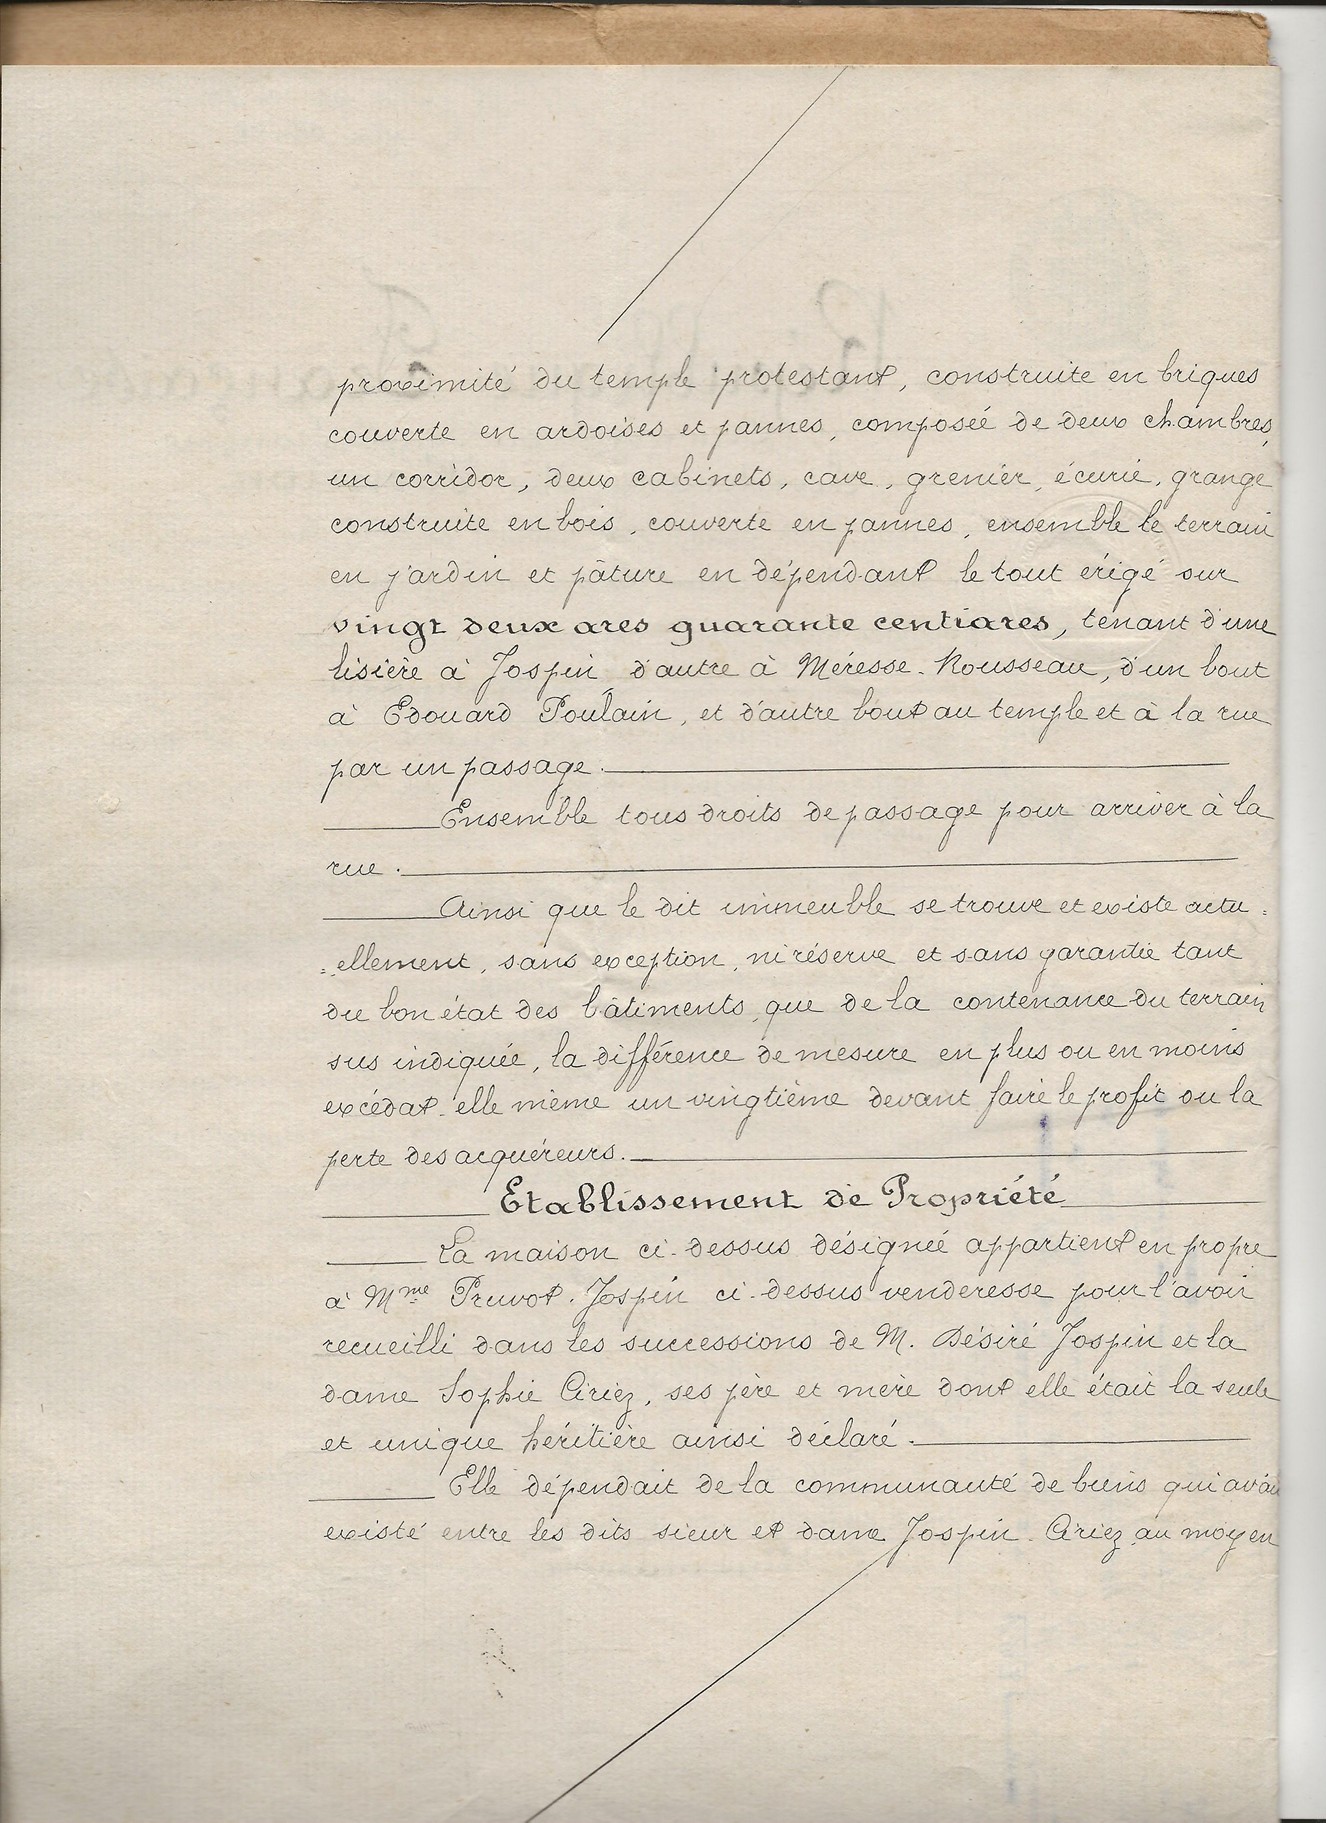 proximité du temple protestant, construite en briques
couverte en ardoises et pannes, composée de deux chambres,
un corridor, deux cabinets, cave, grenier, écurie, grange
construite en bois, couverte en pannes, ensemble le terrain
en jardin et pâture en dépendant le tout érigé sur
vingt deux ares quarante centiares, tenant d'une
lisière à Jospin d'autre à Méresse-Rousseau, d'un bout
à Edouard Poulain, et d'autre bout au temple et à la rue
par un passage.
Ensemble tous droits de passage pour arriver à la
rue.
Ainsi que le dit immeuble se trouve et existe actu=
=ellement, sans exception, ni réserve et sans garantie tant
du bon état des bâtiments, que de la contenance du terrain
sus indiquée, la différence de mesure en plus ou en moins
excédat-elle même un vingtième devant faire le profit ou la
perte des acquéreurs.
Etablissement de Propriété
La maison ci-dessus désignée appartient en propre
à Mme Pruvot-Jospin ci-dessus venderesse pour l'avoir
recueilli dans les successions de M. Désiré Jospin et la
dame Sophie Ciriez, ses père et mère dont elle était la seule
et unique héritière ainsi déclaré.
Elle dépendait de la communauté de biens qui avait
existé entre les dits sieur et dame Jospin-Ciriez au moyen